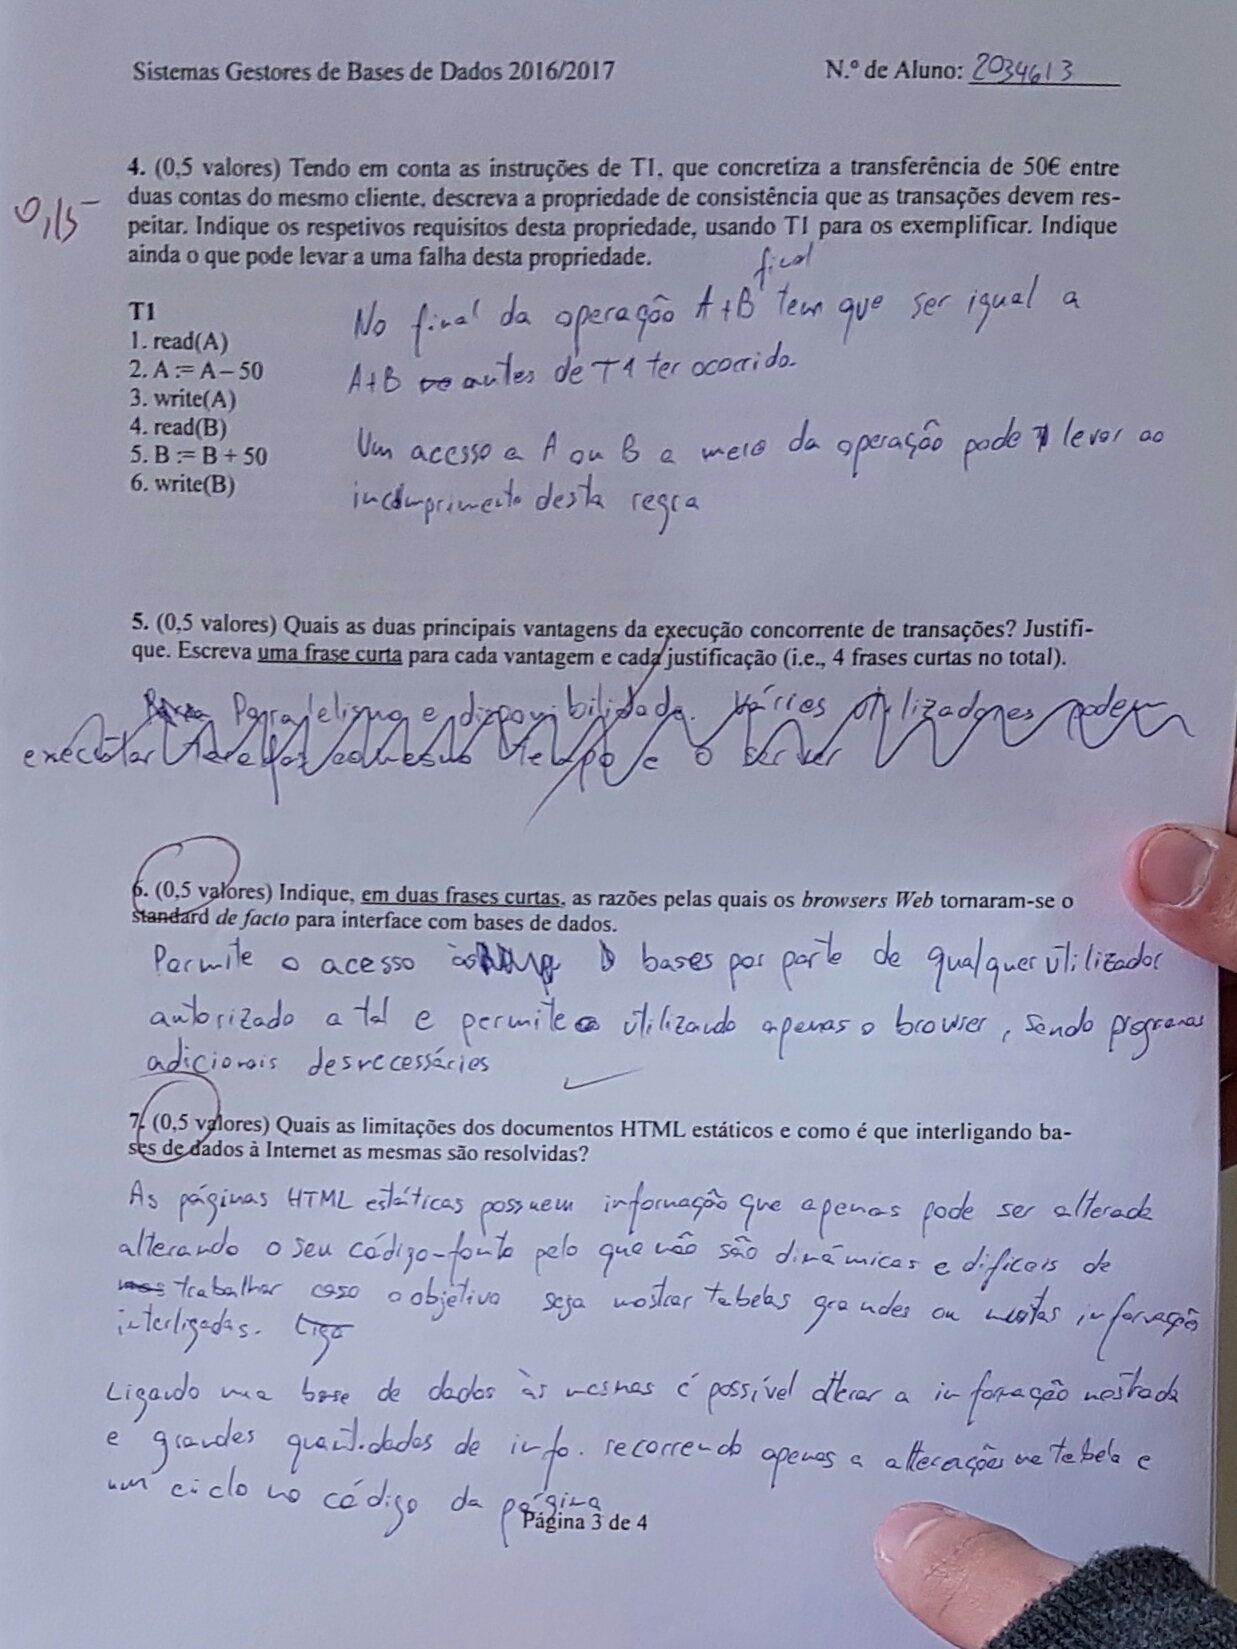 Sistemas Gestores de Bases de Dados 2016/2017 N.º de Aluno: 2034613
4. (0,5 valores) Tendo em conta as instruções de T1, que concretiza a transferência de 50€ entre
0,15
duas contas do mesmo cliente, descreva a propriedade de consistência que as transações devem res-
peitar. Indique os respetivos requisitos desta propriedade, usando T1 para os exemplificar. Indique
ainda o que pode levar a uma falha desta propriedade.
final
T1
No final da operação A+B tem que ser igual a
1. read(A)
2. A := A – 50
A+B antes de T1 ter ocorrido.
3. write(A)
4. read(B)
Um acesso a A ou B a meio da operação pode levar ao
5. B := B + 50
6. write(B)
incumprimento desta regra
5. (0,5 valores) Quais as duas principais vantagens da execução concorrente de transações? Justifi-
que. Escreva uma frase curta para cada vantagem e cada justificação (i.e., 4 frases curtas no total).
Paralelismo e disponibilidade. Vários utilizadores podem
executar tarefas ao mesmo tempo e o server
6. (0,5 valores) Indique, em duas frases curtas, as razões pelas quais os browsers Web tornaram-se o
standard de facto para interface com bases de dados.
Permite o acesso às bases por parte de qualquer utilizador
autorizado a tal e permite utilizando apenas o browser, sendo programas
adicionais desnecessários
7. (0,5 valores) Quais as limitações dos documentos HTML estáticos e como é que interligando ba-
ses de dados à Internet as mesmas são resolvidas?
As páginas HTML estáticas possuem informação que apenas pode ser alterada
alterando o seu código-fonte pelo que não são dinâmicas e difíceis de
trabalhar caso o objetivo seja mostrar tabelas grandes ou muitas informação
interligadas. Liga
Ligando uma base de dados às mesmas é possível alterar a informação mostrada
e grandes quantidades de info. recorrendo apenas a alterações na tabela e
um ciclo no código da página
Página 3 de 4